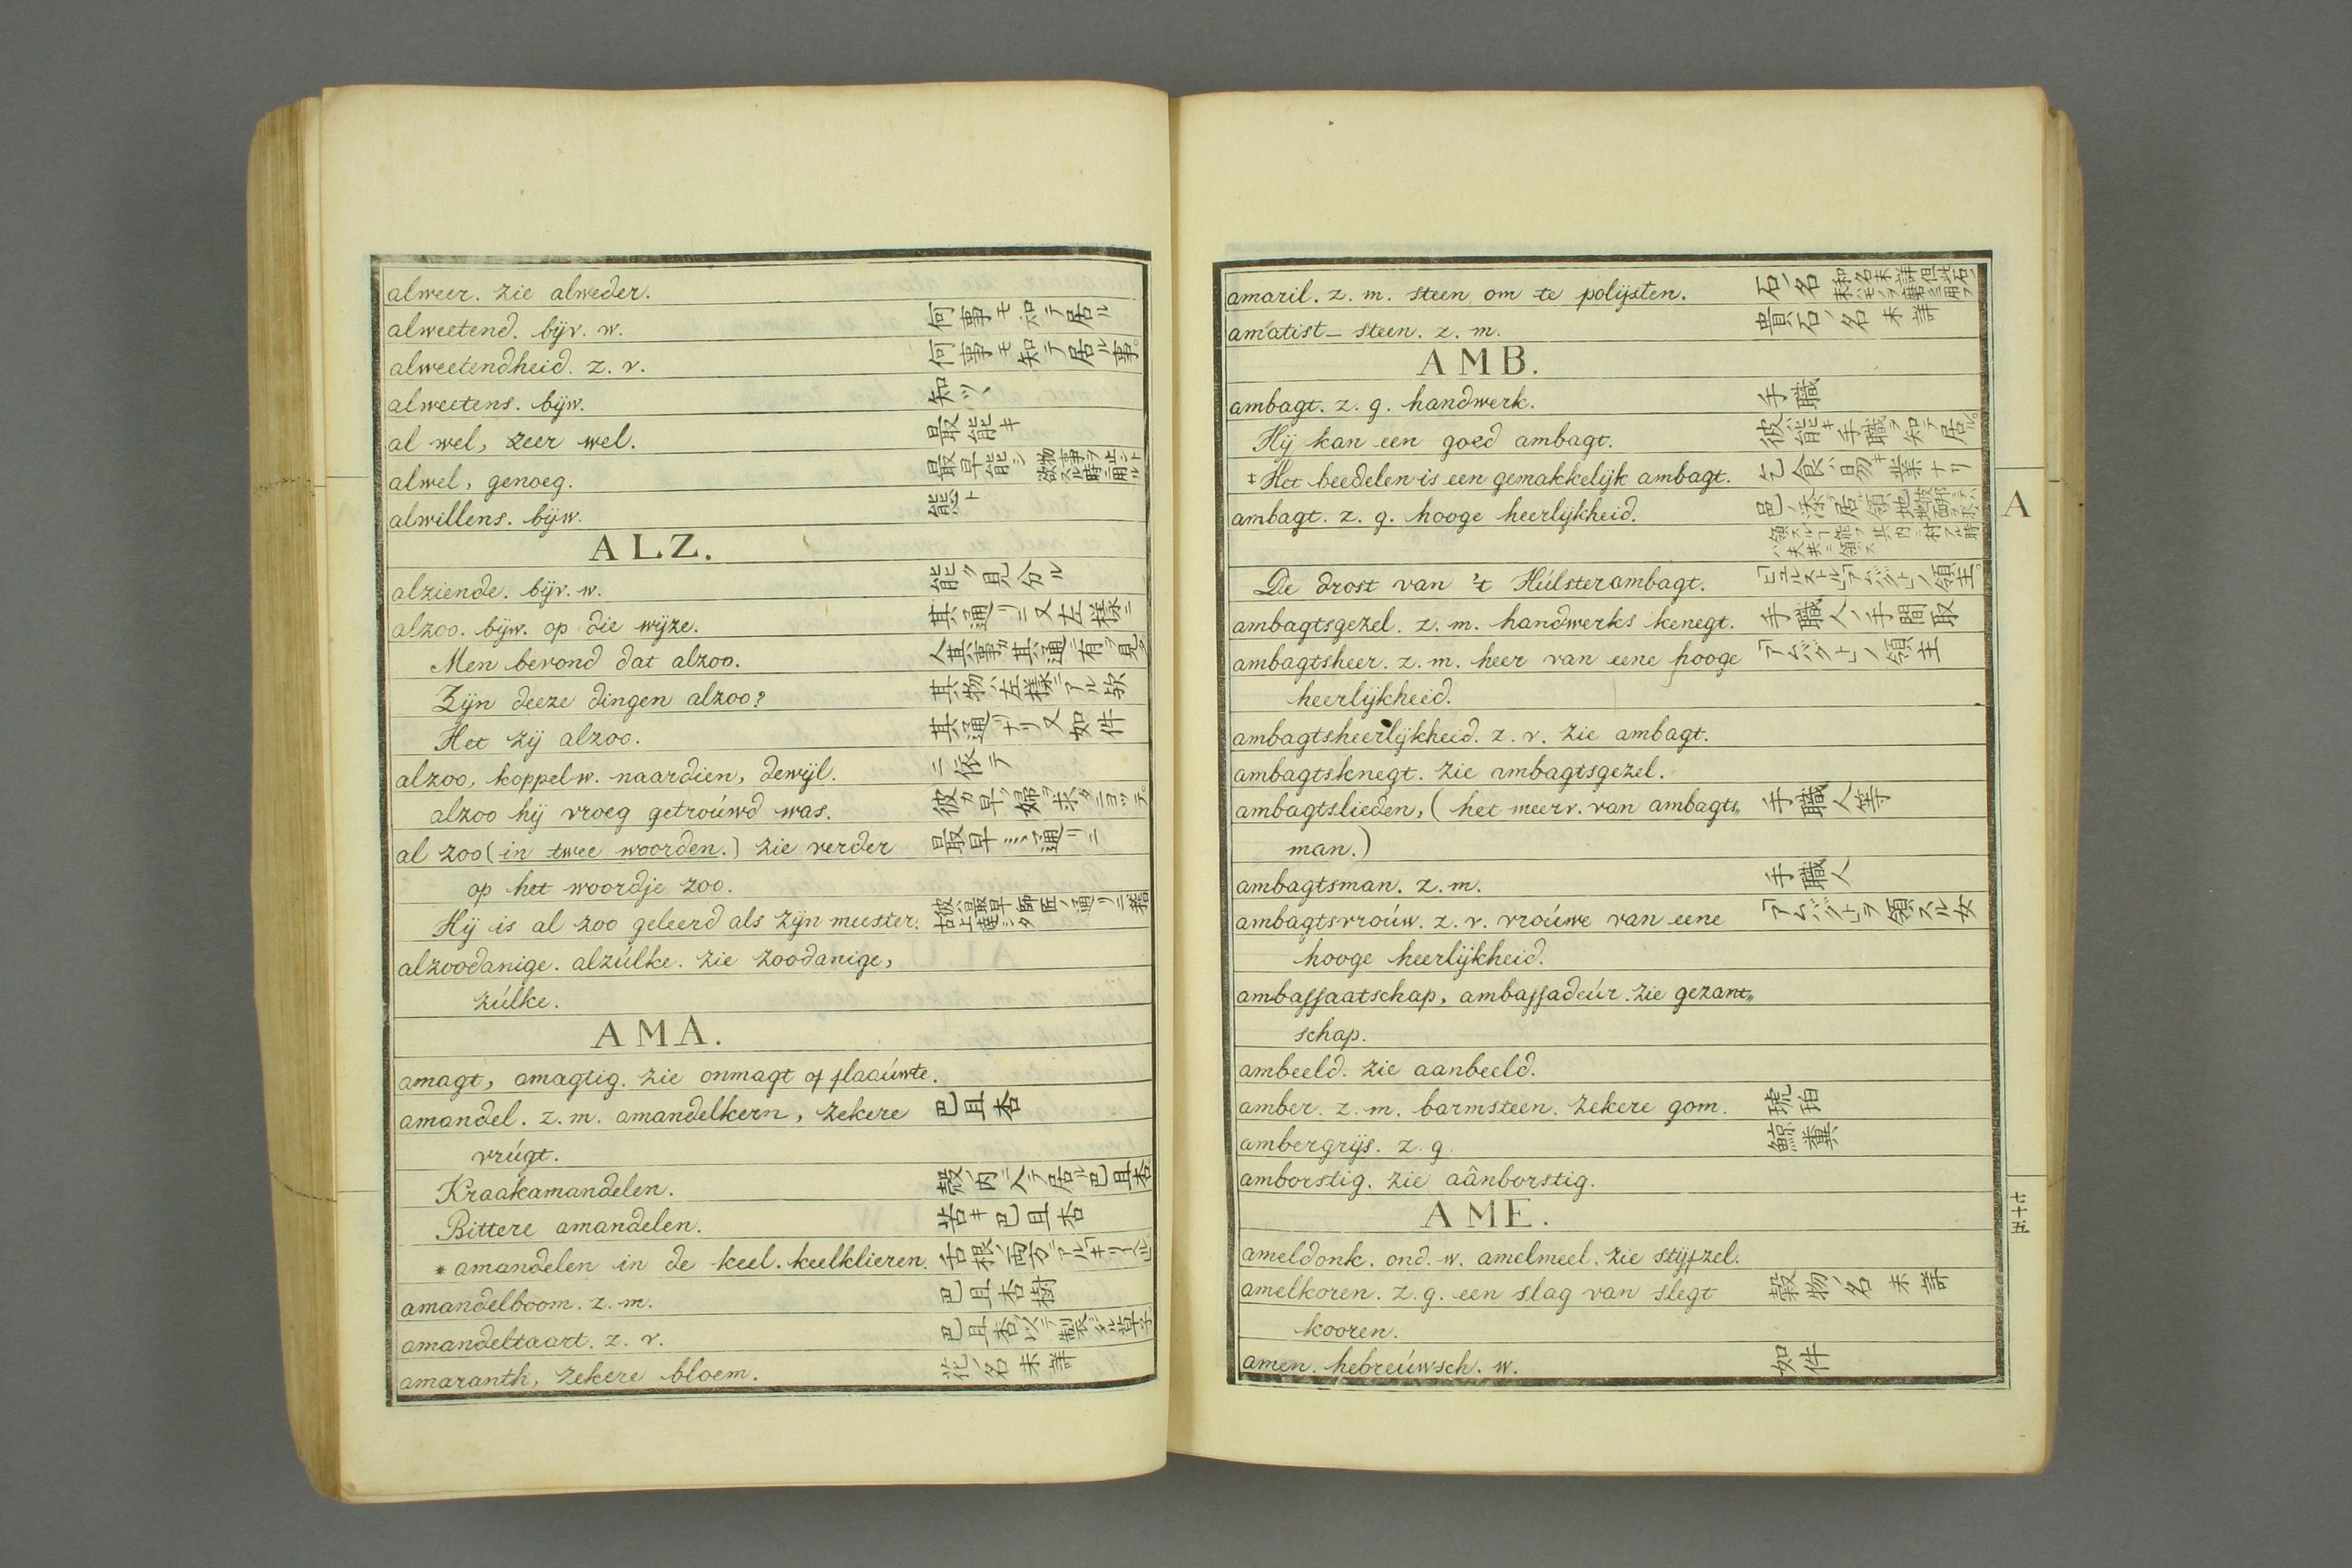 alweer. zie alweder.
alweetend. bijv. w. 何事モ知テ居ル
alweetendheid. z. v. 何事モ知テ居ル事。
alweetens. bijw. 知ツヽ
al wel, zeer wel. 最能キ
alwel, genoeg. 最早能シ
alwillens. bijw. 態ト
ALZ.
alziende. bijv. w. 能ク見分ル
alzoo. bijw. op die wijze. 其通リニ又左樣ニ
Men bevond dat alzoo.
Zijn deeze dingen alzoo? 其物ハ左樣ニアル欤
Het zij alzoo. 其通リナリ又如件
alzoo, koppelw. naardien, dewijl. ニ依テ
alzoo hij vroeg getroúwd was.
al zoo (in twee woorden.) zie verder 最早
op het woordje zoo.
Hij is al zoo geleerd als zijn meester.
alzoodanige. alzúlke. zie zoodanige,
zúlke.
AMA.
amagt, amagtig. zie onmagt of flaaúwte.
amandel. z. m. amandelkern, zekere 巴旦杏
vrúgt.
Kraakamandelen. 殼ノ内ニ入テ居ル巴旦杏。
Bittere amandelen. 苦キ巴旦杏
* amandelen in de keel. keelklieren.
amandelboom. z. m. 巴旦杏樹
amandeltaart. z. v.
amaranth, zekere bloem. 花ノ名未詳
amaril. z. m. steen om te polijsten. 石ノ名
amatist-steen. z. m. 貴石ノ名 未詳
AMB.
ambagt. z. g. handwerk. 手職
Hij kan een goed ambagt. 彼能キ手職ヲ知テ居ル。
‡ Het beedelen is een gemakkelijk ambagt. 乞食ハ易キ業ナリ
ambagt. z. g. hooge heerlijkheid.
A
De drost van 't Húlsterambagt.
ambagtsgezel. z. m. handwerks kenegt. 手職人ノ手間取
ambagtsheer. z. m. heer van eene hooge 「アムバクト」ノ領主
heerlijkheid.
ambagtsheerlijkheid. z. v. zie ambagt.
ambagtsknegt. zie ambagtsgezel.
ambagtslieden, (het meerv. van ambagts„ 手職人等
man.)
ambagtsman. z. m. 手職人
ambagtsvroúw. z. v. vroúwe van eene 「アムバクト」ヲ領スル女
hooge heerlijkheid.
ambaſſaatschap, ambaſſadeúr. zie gezant„
schap.
ambeeld. zie aanbeeld.
amber. z. m. barmsteen. zekere gom. 琥珀
ambergrijs. z. g. 鯨糞
amborstig. zie aânborstig.
AME.
ameldonk. ond. w. amelmeel. zie stijfzel.
amelkoren. z. g. een slag van slegt 穀物ノ名 未詳
kooren.
amen. hebreúwsch. w. 如件